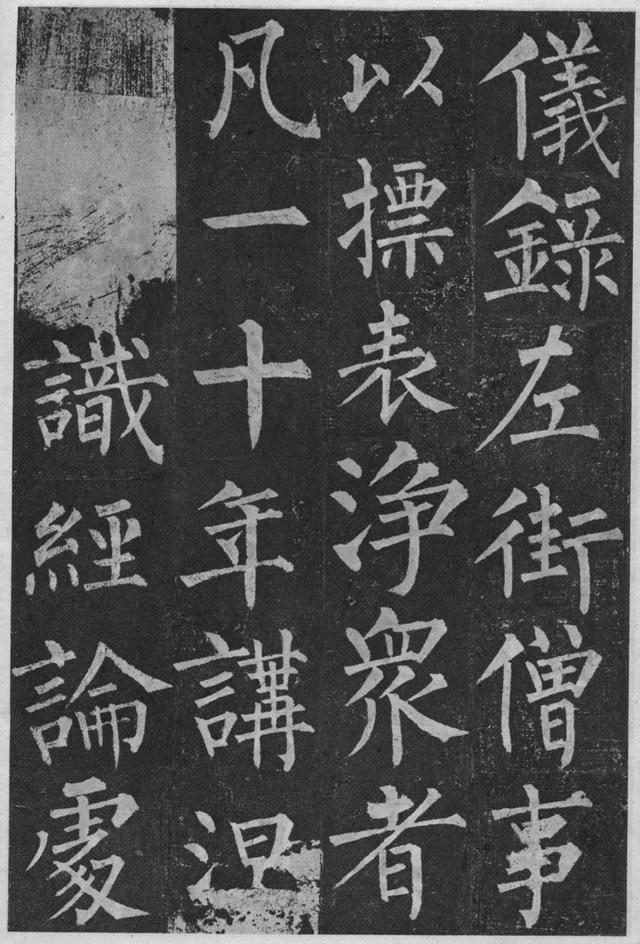 儀錄左街僧事
以摽表淨衆者
凡一十年講涅
識經論處